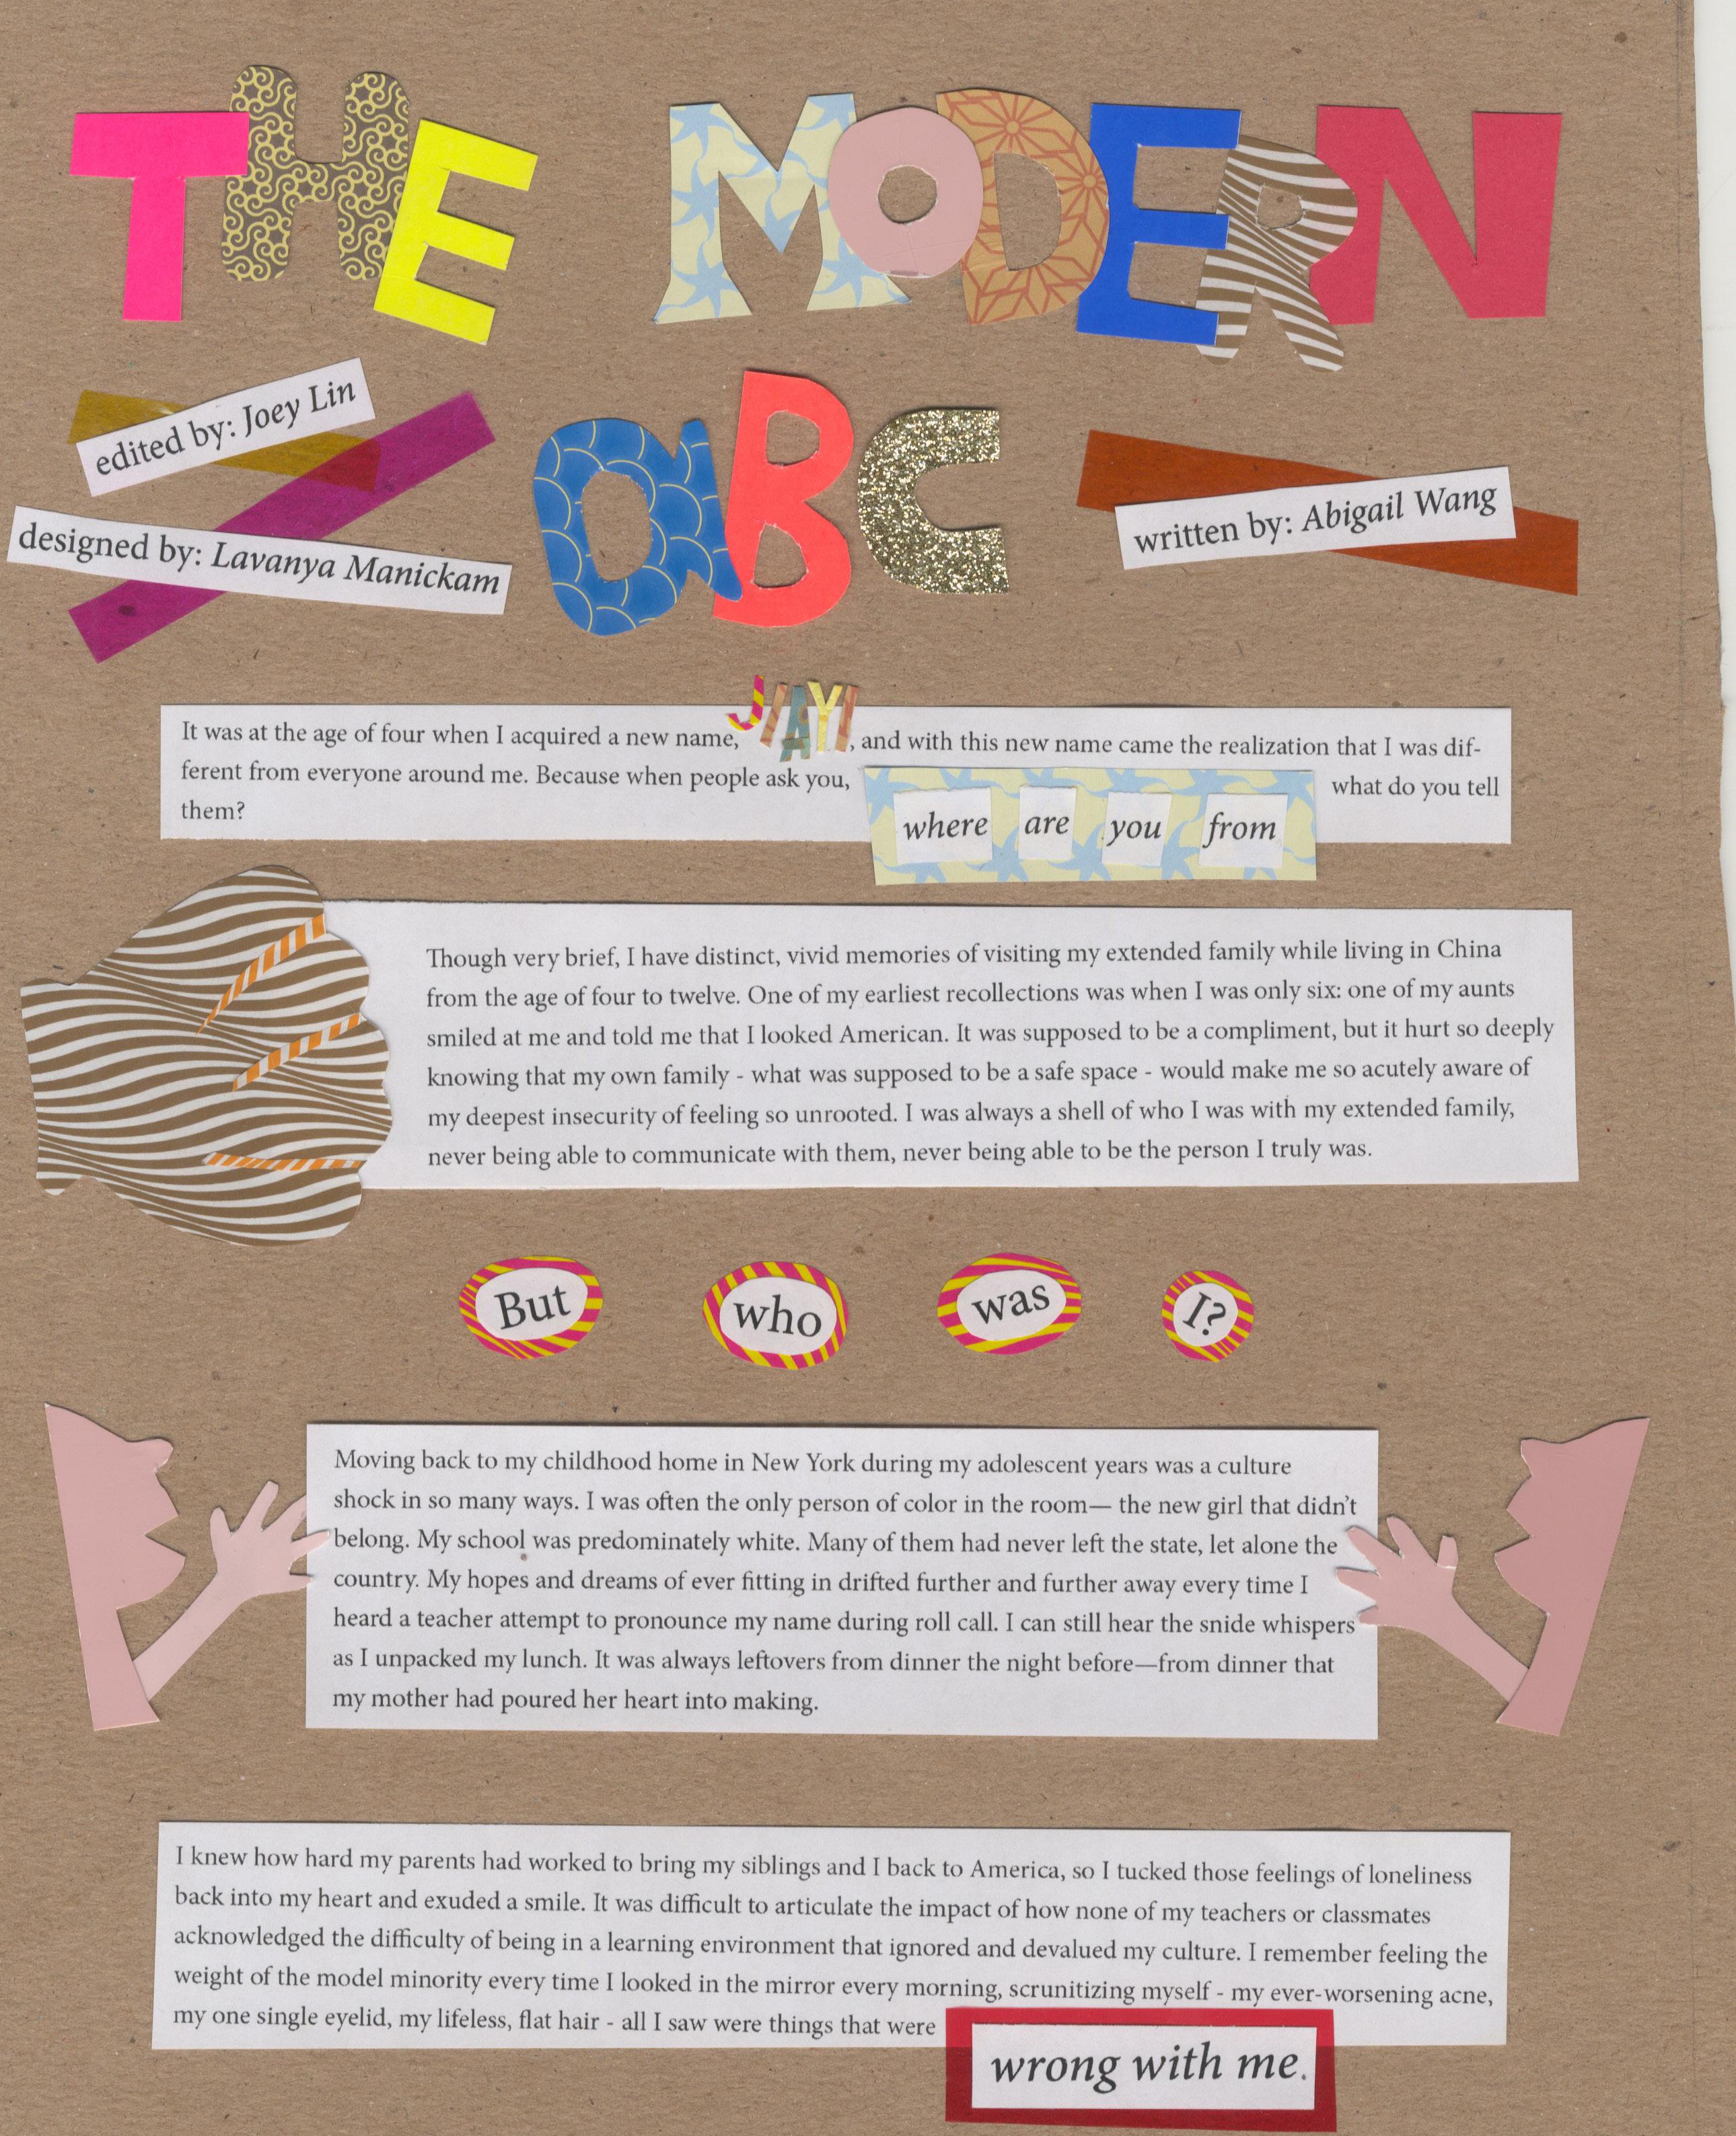 THE MODERN
aBC
edited by: Joey Lin
designed by: Lavanya Manickam
written by: Abigail Wang
It was at the age of four when I acquired a new name, JIAYI, and with this new name came the realization that I was dif-
ferent from everyone around me. Because when people ask you, where are you from what do you tell
them?
Though very brief, I have distinct, vivid memories of visiting my extended family while living in China
from the age of four to twelve. One of my earliest recollections was when I was only six: one of my aunts
smiled at me and told me that I looked American. It was supposed to be a compliment, but it hurt so deeply
knowing that my own family - what was supposed to be a safe space - would make me so acutely aware of
my deepest insecurity of feeling so unrooted. I was always a shell of who I was with my extended family,
never being able to communicate with them, never being able to be the person I truly was.
But who was I?
Moving back to my childhood home in New York during my adolescent years was a culture
shock in so many ways. I was often the only person of color in the room— the new girl that didn't
belong. My school was predominately white. Many of them had never left the state, let alone the
country. My hopes and dreams of ever fitting in drifted further and further away every time I
heard a teacher attempt to pronounce my name during roll call. I can still hear the snide whispers
as I unpacked my lunch. It was always leftovers from dinner the night before—from dinner that
my mother had poured her heart into making.
I knew how hard my parents had worked to bring my siblings and I back to America, so I tucked those feelings of loneliness
back into my heart and exuded a smile. It was difficult to articulate the impact of how none of my teachers or classmates
acknowledged the difficulty of being in a learning environment that ignored and devalued my culture. I remember feeling the
weight of the model minority every time I looked in the mirror every morning, scrunitizing myself - my ever-worsening acne,
my one single eyelid, my lifeless, flat hair - all I saw were things that were
wrong with me.